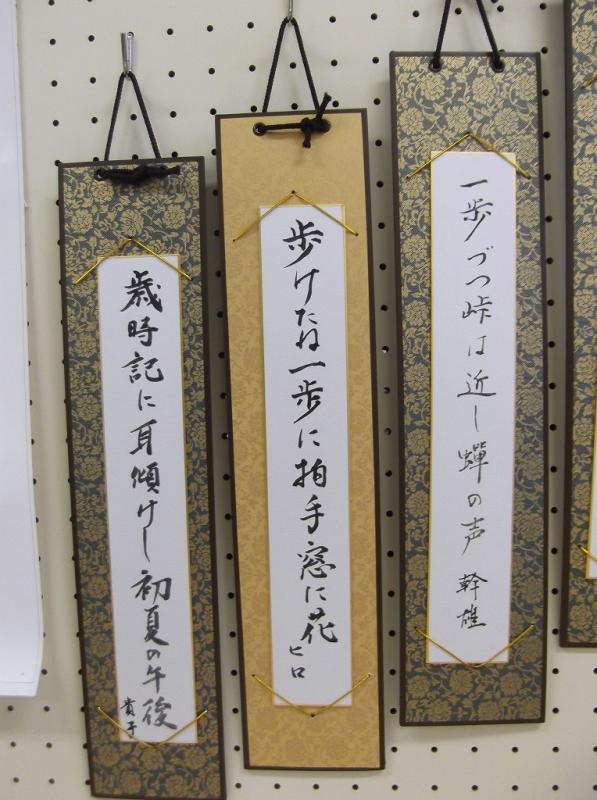 一歩づつ峠は近し蟬の声 幹雄
歩けたね一歩に拍手窓に花 ヒロ
歳時記に耳傾けし初夏の午後 貴子